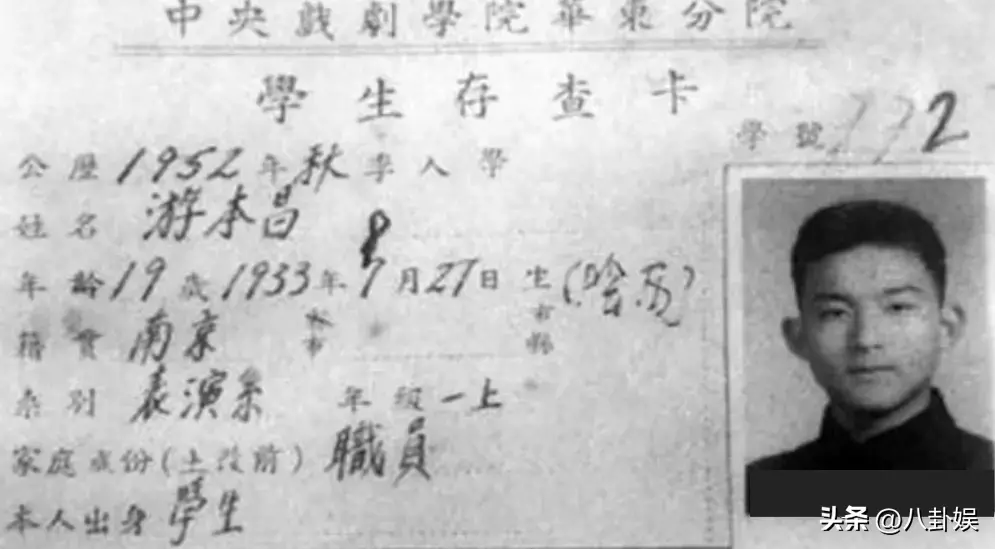 中央戲劇學院華東分院
學生存查卡
學號 2
公歷1952年秋季入學
姓名 游本昌
8
年齡19歲1933年7月27日生(陰历)
籍貫 南京 市 市縣
系別 表演系 年級一上
家庭成份(土改前) 職員
本人出身 學生
头条 @八卦娱